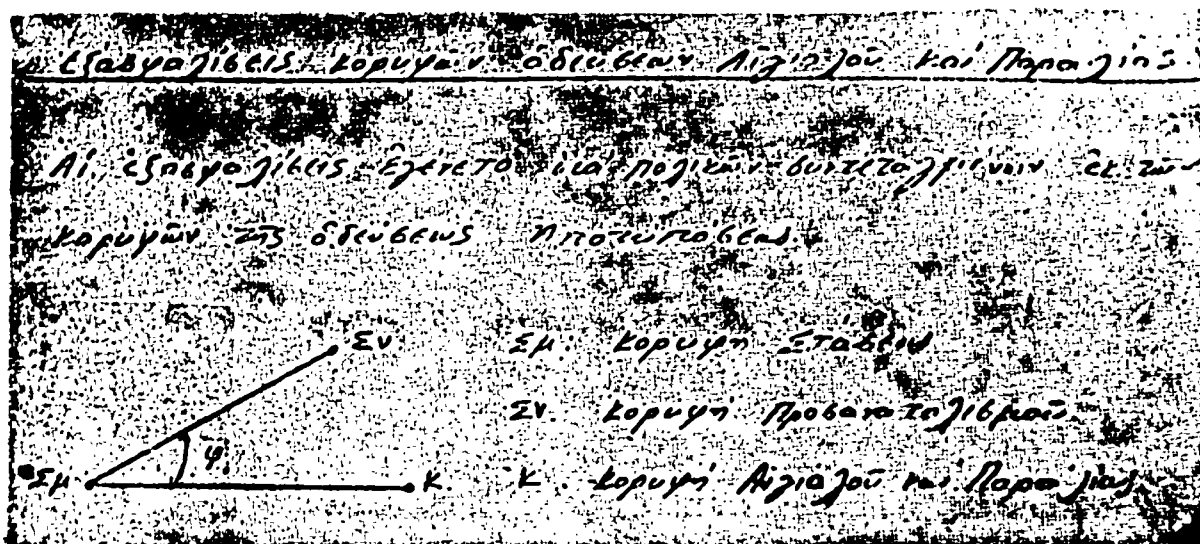 Ἐξασφαλίσεις κορυφῶν ὁδεύσεων Αἰγιαλοῦ καί Παραλίας.
Αἱ ἐξασφαλίσεις ἐγένετο διά πολικῶν συντεταγμένων ἐκ τῶν
κορυφῶν τῆς ὁδεύσεως Ἀποτυπώσεως.
Σν Σμ. κορυφή Στάσεως
Σν. κορυφή Προσανατολισμοῦ.
φ
Σμ Κ Κ. κορυφή Αἰγιαλοῦ καί Παραλίας.